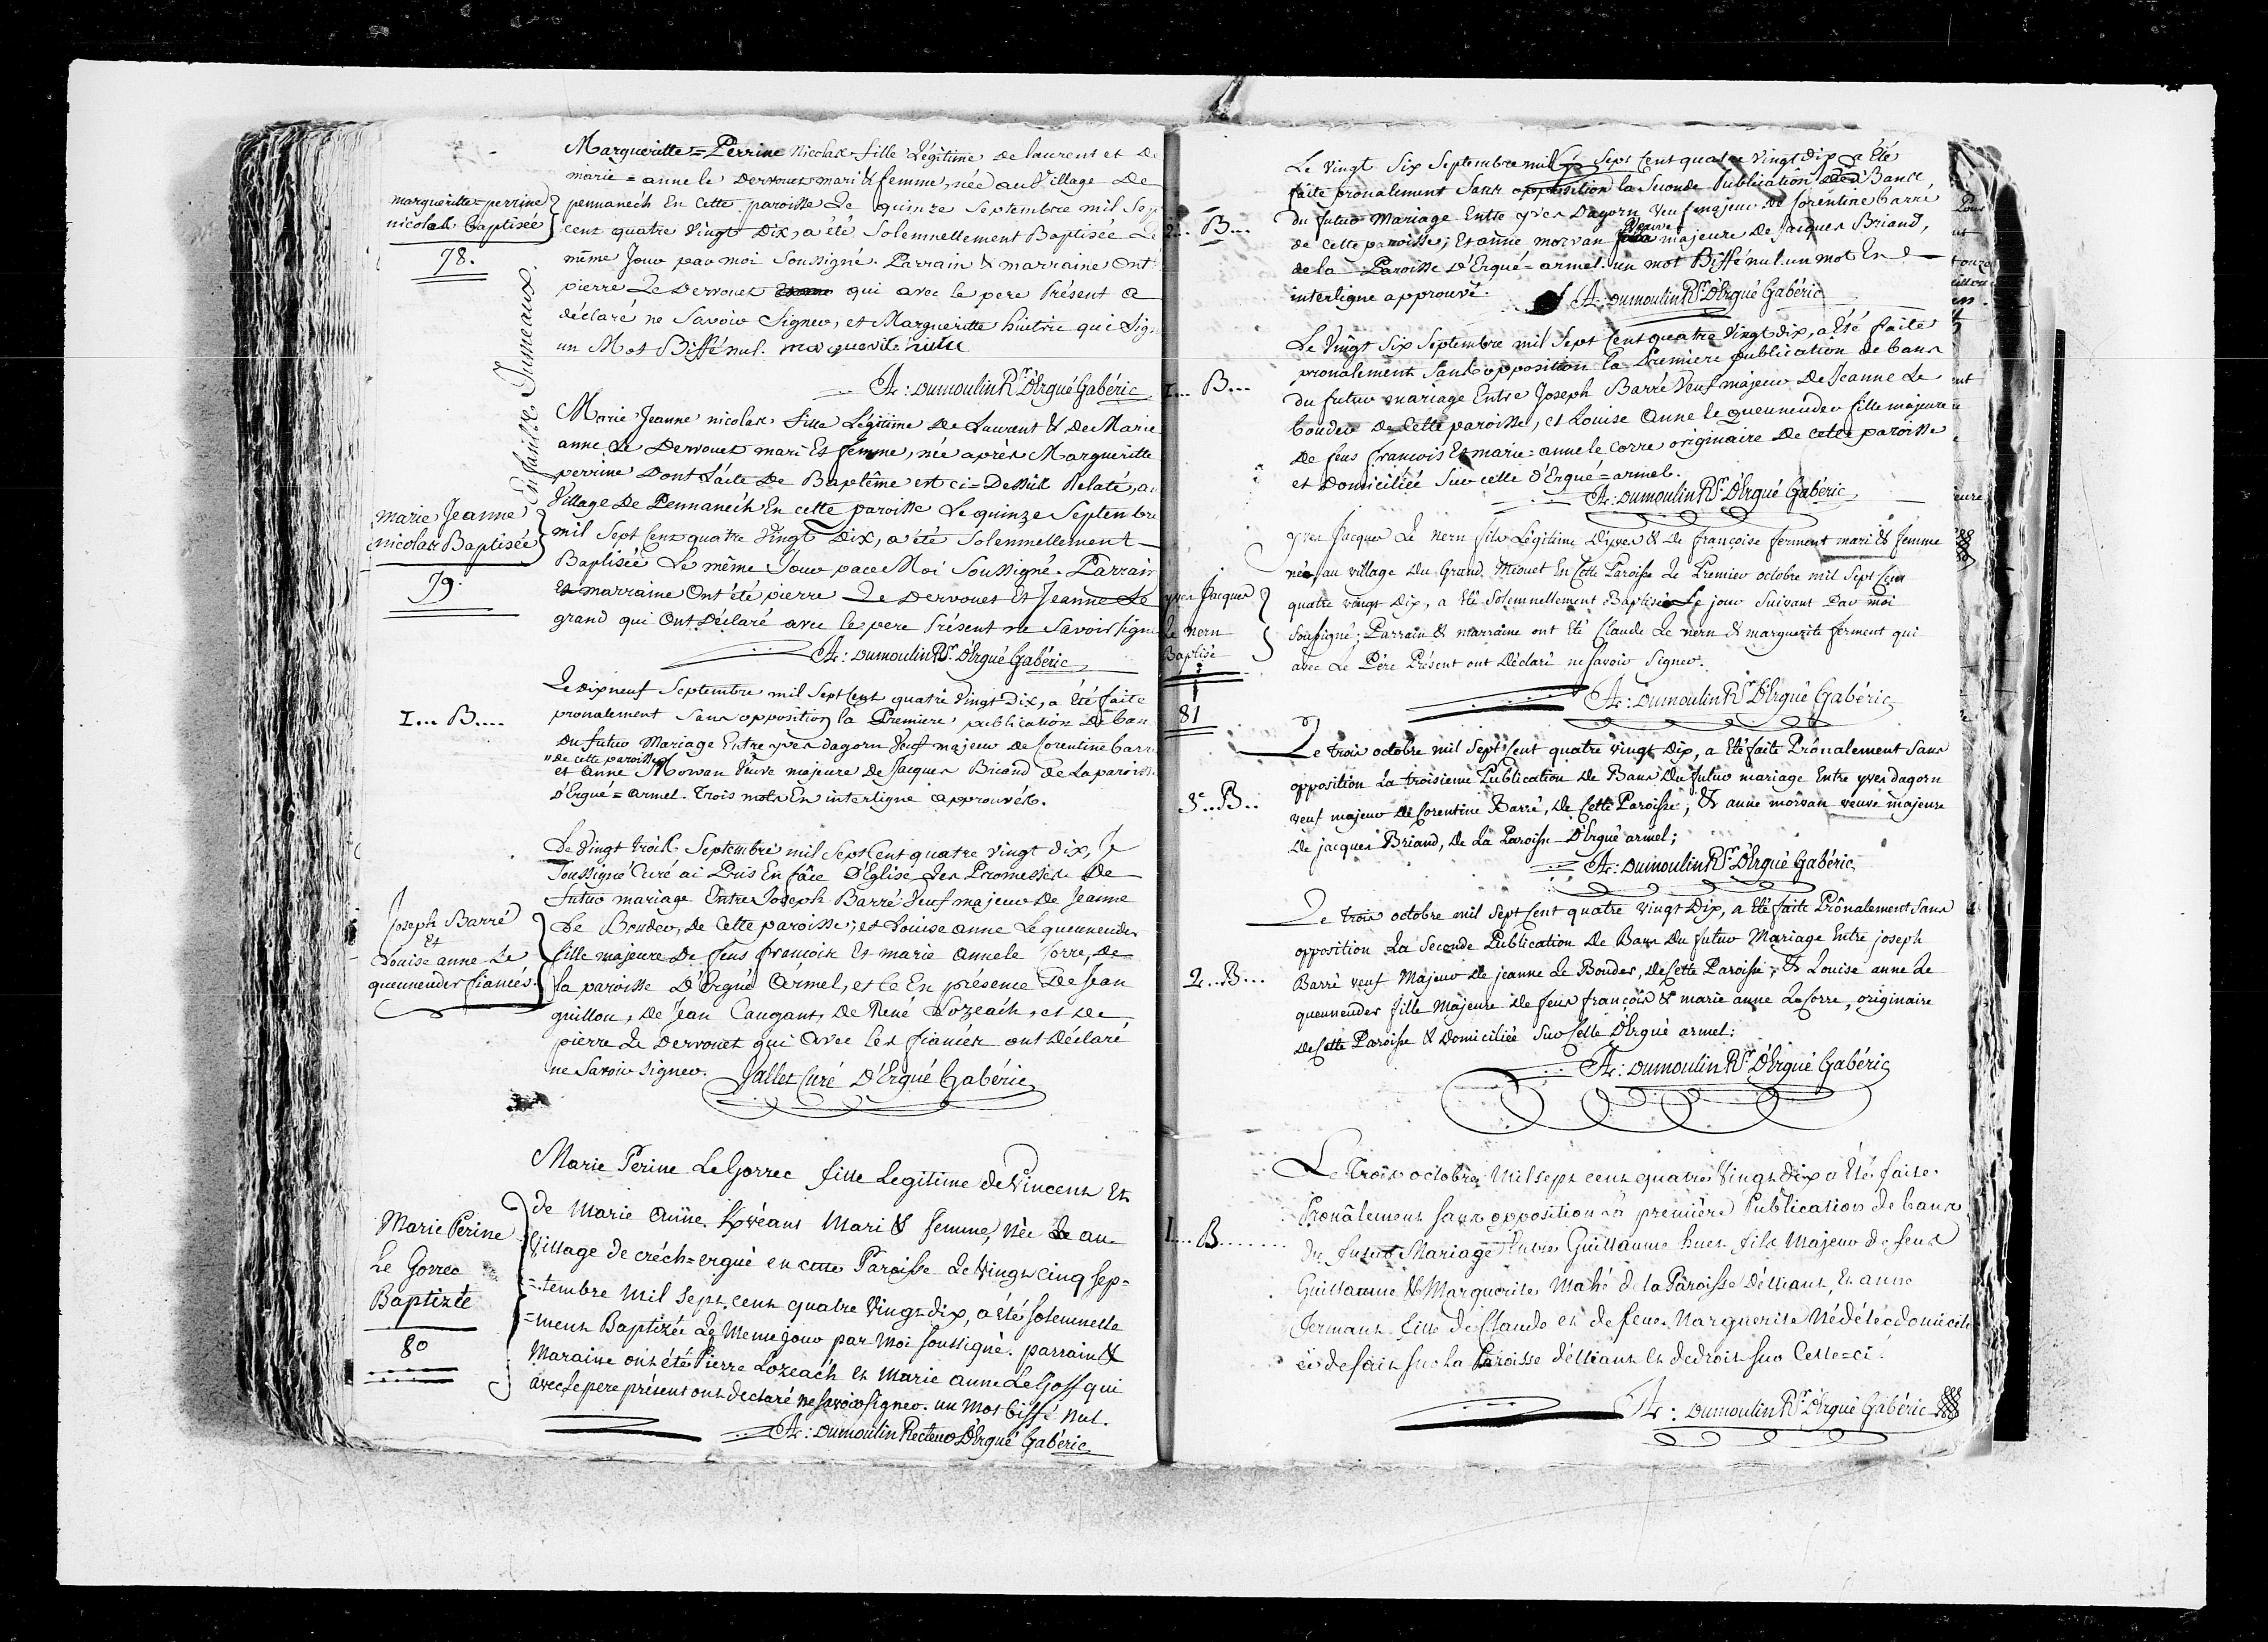 Margueritte=Perrine Nicolas fille Légitime de laurent et De
marie=anne le Dervouet mari & femme, née au Village De
margueritte=perrine
nicolas baptisée
78.
pennanech En Cette paroisse Le quinze Septembre mil Sep
cent quatre Vingt Dix, a été Solemnellement Baptisée Le
même Jour par moi Soussigné. Parrain & marraine Ont
pierre Le Dervouet qui avec le pere Présent a
déclaré ne Savoir Signer, et Margueritte huitric qui Sign
un Mot Biffé nul.
A: Dumoulin Rr. D'Ergué Gabéric
Enfants Jumeaux.
Marie Jeanne nicolas fille Légitime De Laurent & De Marie
anne Le Dervouet mari Et femme, née après Margueritte
perrine Dont L'acte De Baptême est ci=Dessus Relaté, au
Village De Pennanech En cette paroisse Le quinze Septembre
marie Jeanne
nicolas Baptisée
79.
mil Sept Cent quatre Vingt Dix, a été Solemnellement
Baptisée Le même Jour par Moi Soussigné. Parrain
et marraine Ont été pierre Le Dervouet et Jeanne Le
grand qui Ont Déclaré avec le pere Présent ne Savoir Signe
A: Dumoulin Rr. D'Ergué Gabéric
1... B....
Le dix neuf Septembre mil Sept Cent quatre Vingt Dix, a Eté faite
pronalement Sans opposition la Premiere publication De ban
Du futur Mariage Entre yves dagorn Veuf majeur de Corentine barré
"de cette paroisse"
et Anne Morvan Veuve majeure De Jacques Briand De La paroisse
D'Ergué=armel. Trois mots En interligne approuvés.
Le Vingt trois Septembre mil Sept Cent quatre vingt dix, Je
Soussigné Curé ai Pris En face D'Eglise Les Promesses De
futur mariage Entre Joseph Barré Veuf majeur De Jeanne
Joseph Barré
Et
Louise anne Le
queuneuder fiancés.
Le Bouder, de Cette paroisse; et Louise anne Le queuneuder
fille majeure De feus francois Et marie anne le Corre, De
la paroisse D'Ergué Armel, et ce En présence De Jean
guillou, De Jean Caugant, De René Lozeach, et De
pierre Le Dervouet qui avec les fiancés ont Déclaré
ne Savoir Signer. Jallet Curé D'Ergué Gabéric
Marie Perine Le Gorrec fille Legitime de Vincent Et
de Marie Anne Mari & femme, Née au
Marie Perine
Le Gorrec
Baptizée
80
Village de créch=ergué en cette Paroisse Le Vingt cinq Sep=
=tembre Mil Sept cent quatre Vingt dix, a été solemnelle
=ment Baptizée Le Meme jour par Moi soussigné. parrain &
Maraine ont été Pierre Lozeach et Marie anne Le Goff qui
avec le pere présent ont declaré ne savoir signer. un Mot biffé Nul.
A: Dumoulin Recteur D'Ergué Gabéric
Le Vingt Six Septembre mil Sept Cent quatre Vingt Dix a Eté
faite pronalement Sans opposition la Seconde Publication Bans
2... B...
du futur Mariage Entre yves Dagorn Veuf majeur De Corentine barré
Veuve
de Cette paroisse; Et anne morvan majeure De Jacques Briand,
de la Paroisse D'Ergué=armel. un mot Biffé nul. un mot En
interligne approuvé. A: Dumoulin Rr. D'Ergué Gabéric
Le Vingt Six Septembre mil Sept Cent quatre Vingt Dix, a Eté faite
pronalement Sans opposition la Premiere publication de bans
1... B...
Du futur mariage Entre Joseph Barré Veuf majeur De Jeanne Le
bouder De Cette paroisse, et Louise Anne le queuneuder fille majeure
De feus francois Et marie=anne le Corre originaire De cette paroisse
et Domiciliée Sur celle d'Ergué=armel.
A: Dumoulin Rr. D'Ergué Gabéric
yves Jacques Le nern fils Légitime D'yves & De françoise ferment mari & femme
né, au village Du Grand Mezuet En Cette Paroisse Le Premier octobre mil Sept Cent
yves Jacques
Le nern
Baptisé
81
quatre vingt Dix, a Eté Solemnellement Baptisé Le jour Suivant Par moi
Soussigné; Parrain & marraine ont Eté Claude Le nern & marguerite ferment qui
avec Le Pére Présent ont Déclaré ne Savoir Signer.
A: Dumoulin Rr. D'Ergué Gabéric
Le trois octobre mil Sept Cent quatre vingt Dix, a Eté faite Prônalement Sans
opposition La troisieme Publication De Bans Du futur mariage Entre yves dagorn
3e.. B..
veuf majeur De Corentine Barré, De Cette Paroisse; & anne morvan veuve majeure
De jacques Briand, De La Paroisse D'Ergué armel;
A: Dumoulin Rr. D'Ergué Gabéric
Le trois octobre mil Sept Cent quatre vingt Dix, a Eté faite Prônalement Sans
opposition La Seconde Publication De Bans Du futur Mariage Entre joseph
2... B...
Barré veuf Majeur De jeanne Le Bouder, De Cette Paroisse; & Louise anne Le
queuneuder fille Majeure De feus françois & marie anne Le Corre, originaire
De Cette Paroisse & Domiciliée Sur Celle D'Ergué armel:
A: Dumoulin Rr. D'Ergué Gabéric
Le Trois octobre Mil sept cent quatre Vingt dix a Eté faite
Pronâlement sans opposition la première Publication de bans
1.... B.......
du futur Mariage Entre Guillaume huet fils Majeur de feus
Guillaume & Marguerite Mahé de la Paroisse D'elliant, Et anne
Germant fille de Claude et de feue Marguerite Nédélec domicili
ée de fait sur la Paroisse d'elliant et de droit sur Celle=ci.
A: Dumoulin Rr. D'Ergué Gabéric